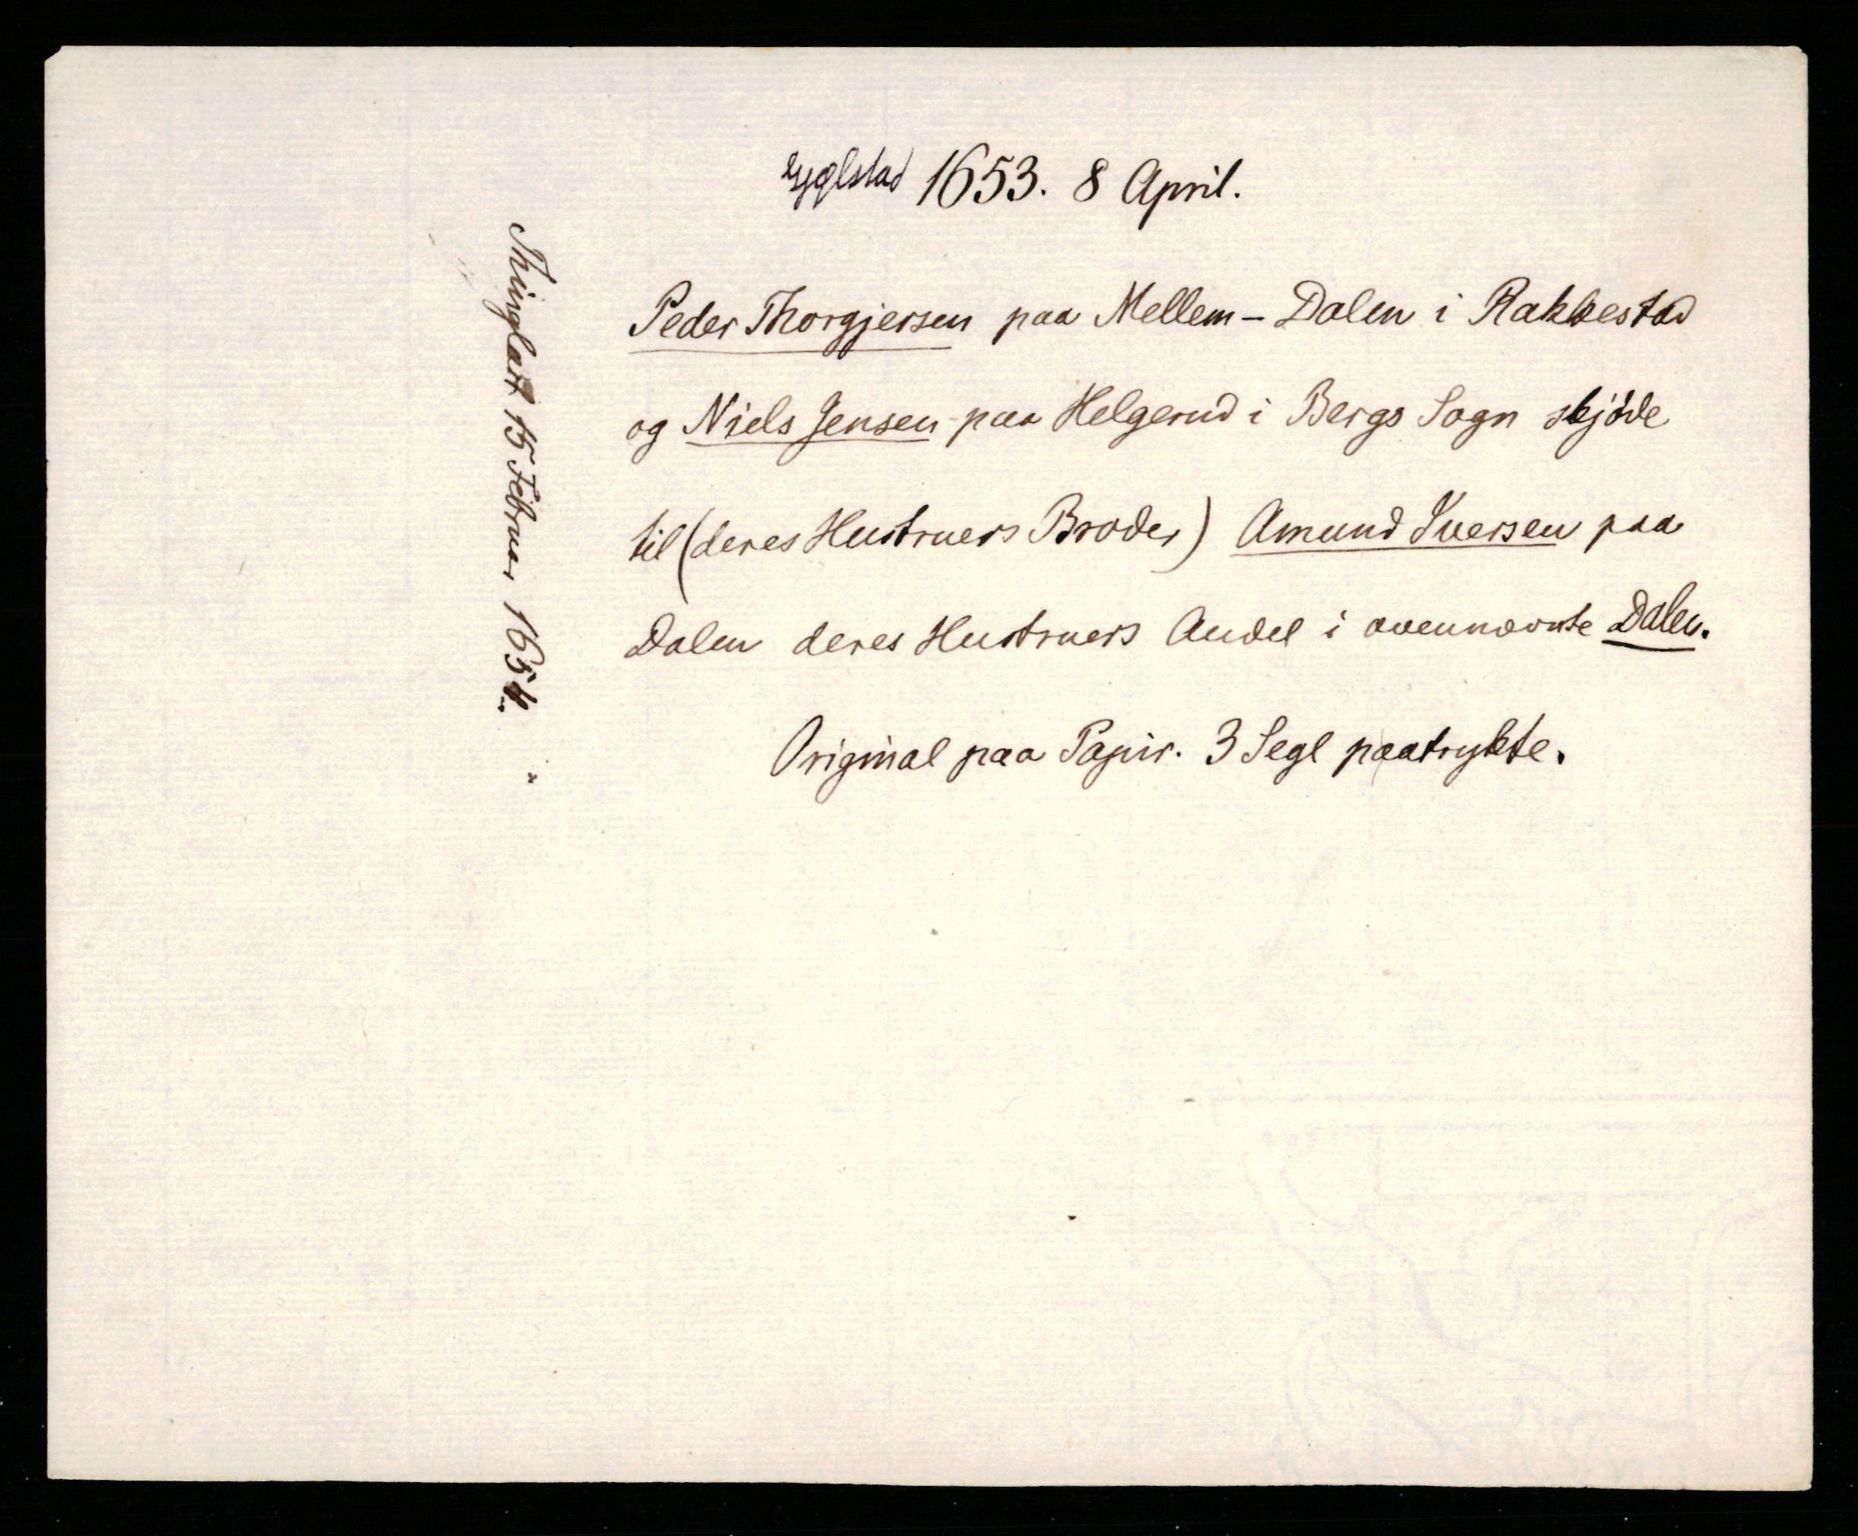 1653. 8 April.
Peder Thorgjersen paa Mellem-Dalen i Rakkestad
og Niels Jensen paa Helgerud i Bergs Sogn skjøde
til (deres Hustruers Broder) Amund Iversen paa
Dalen deres Hustruers Andel i ovennævnte Dalen.
Original paa Papir. 3 Segl paatrykte.
Thinglæst 15 Februar 1654.